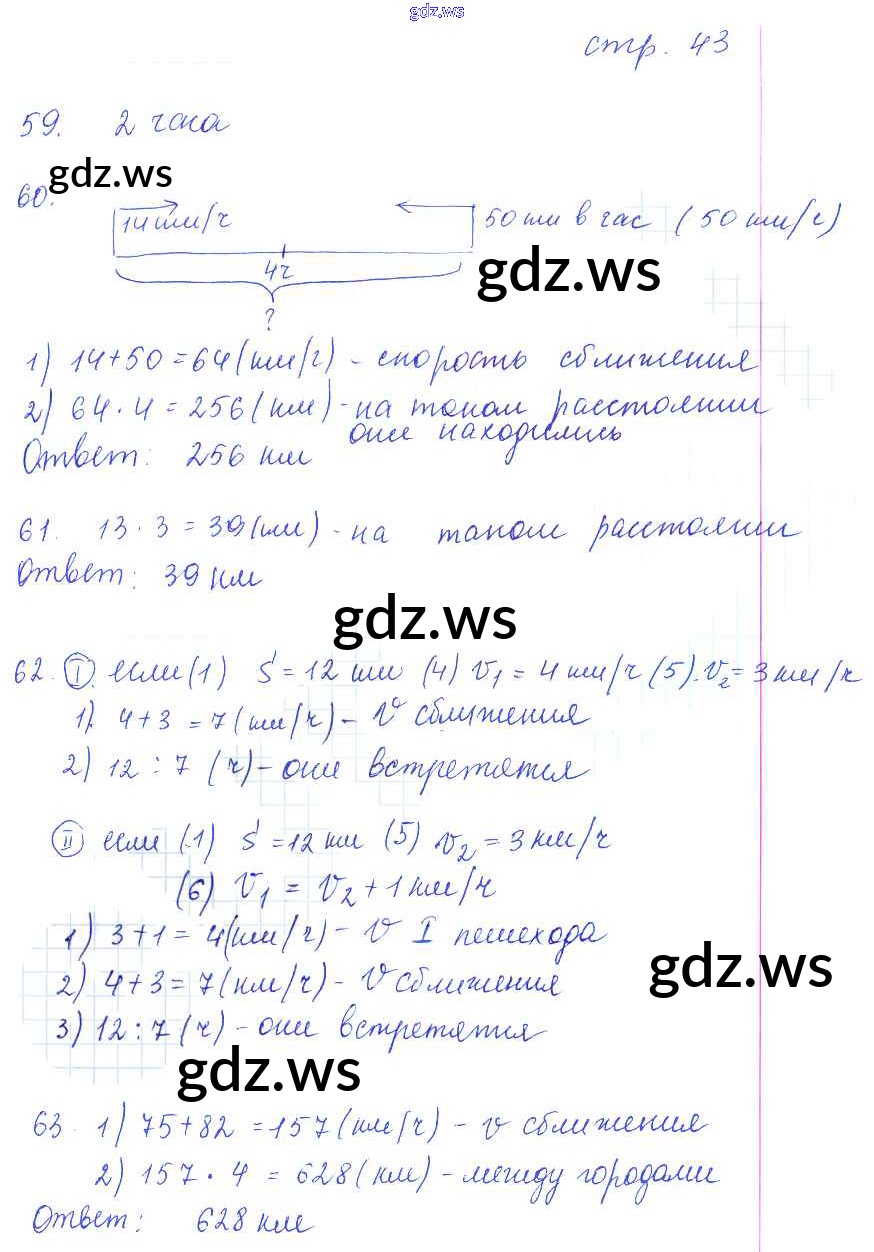 gdz.ws
стр. 43
59. 2 часа
gdz.ws
60.
14 км/ч 50 км в час (50 км/ч)
gdz.ws
4ч
?
1) 14+50=64(км/ч) - скорость сближения
2) 64·4=256(км) - на таком расстоянии
они находились
Ответ: 256 км
61. 13·3=39(км) - на таком расстоянии
Ответ: 39 км
gdz.ws
62. I. если (1) S=12 км (4) v₁=4 км/ч (5). v₂=3 км/ч
1). 4+3=7(км/ч) - v сближения
2) 12:7 (ч) - они встретятся
II если (1) S=12 км (5) v₂=3 км/ч
(6) v₁=v₂+1 км/ч
1) 3+1=4(км/ч) - v I пешехода
gdz.ws
2) 4+3=7(км/ч) - v сближения
3) 12:7(ч) - они встретятся
gdz.ws
63. 1) 75+82=157(км/ч) - v сближения
2) 157·4=628(км) - между городами
Ответ: 628 км